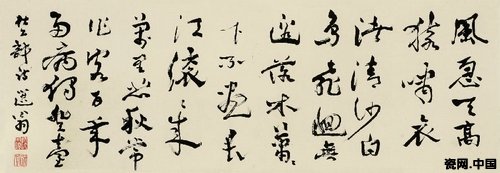 風急天高
猿嘯哀
渚清沙白
鳥飛迴無
邊落木蕭
〻下不盡長
江滾〻來
萬里悲秋常
作客百年
多病獨登臺
杜工部詩 翁
瓷网.中国